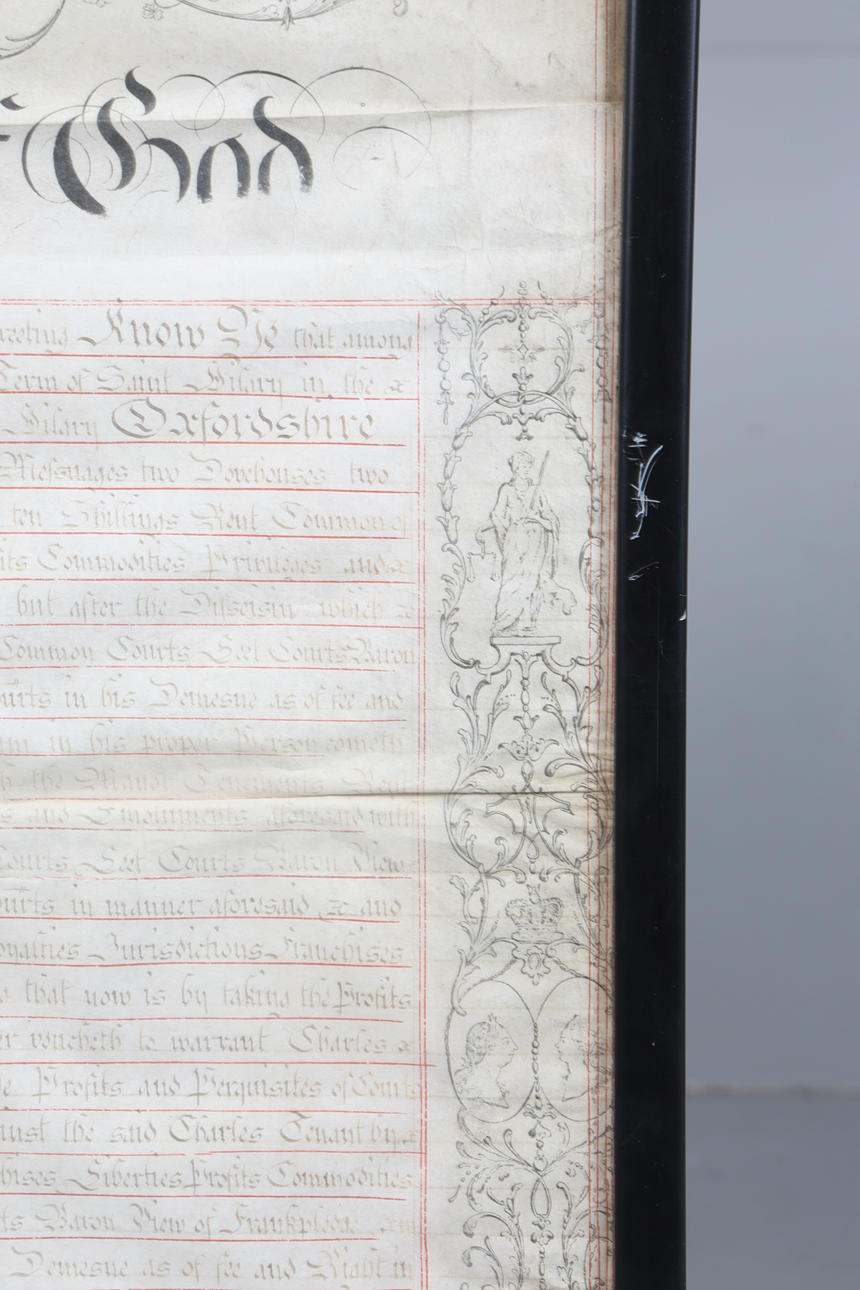 God
Know Ye that among
Term of Saint Hilary in the &c
Hilary Oxfordshire
Messuages two Dovehouses two
ten Shillings Rent Common of
Commodities Priviledges and &c
but after the Disseisin which &c
Common Courts Leet Courts Baron
in his Demesne as of fee and
in his proper Person cometh
the Manor Tenements Rent
and Emoluments aforesaid with
Courts Leet Courts Baron View
in manner aforesaid &c and
Jurisdictions Franchises
that now is by taking the Profits
voucheth to warrant Charles &c
Profits and Perquisites of Courts
the said Charles Tenant by &c
Liberties Profits Commodities
Baron View of Frankpledge
Demesne as of fee and Right in